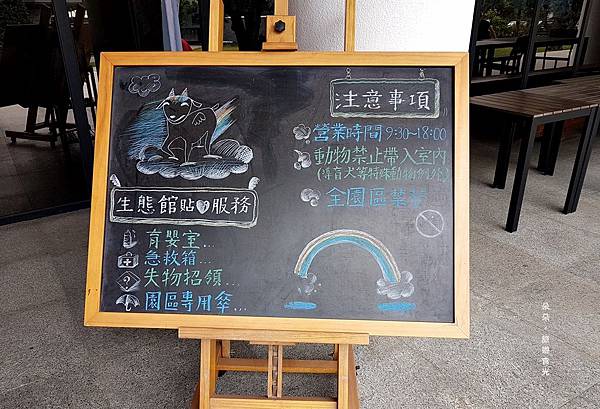 生態館貼心服務
育嬰室...
急救箱...
失物招領...
園區專用傘...
注意事項
營業時間 9:30~18:00
動物禁止帶入室內
(導盲犬等特殊動物例外)
全園區禁菸